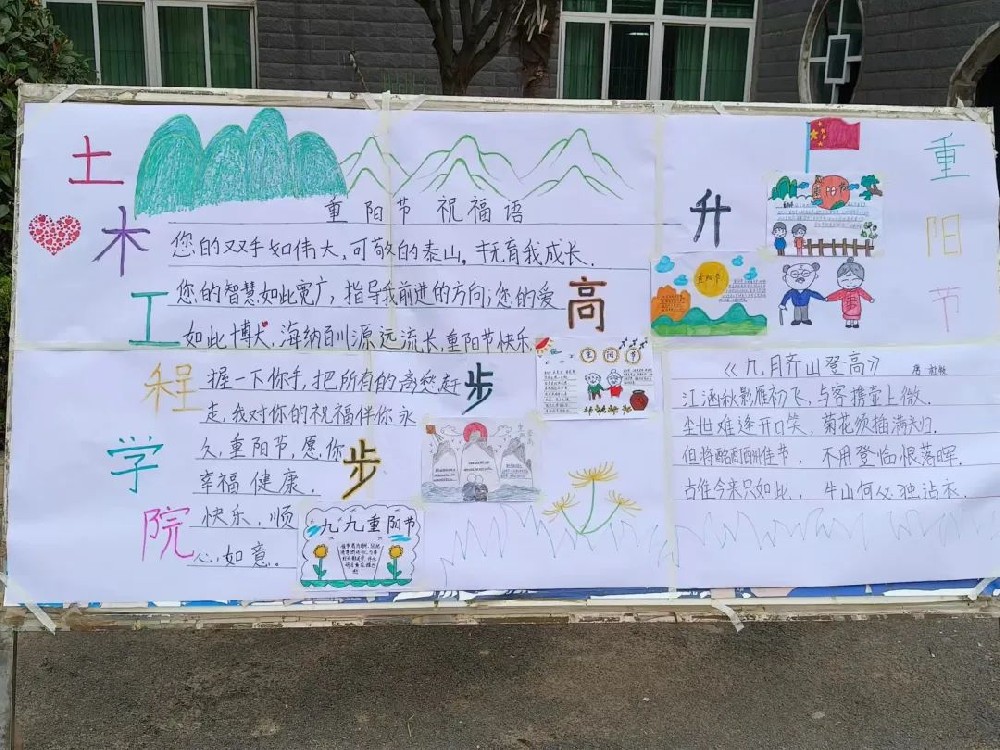 土木工程学院
步步高升
重阳节
重阳节祝福语
您的双手如伟大,可敬的泰山。抚育我成长.
您的智慧如此宽广,指导我前进的方向;您的爱
如此博大,海纳百川源远流长,重阳节快乐
握一下你手,把所有的忧愁赶
走,我对你的祝福伴你永
久,重阳节,愿你
幸福健康.
快乐,顺
心,如意.
重阳节
重阳节
九九重阳节
《九月齐山登高》 唐
江涵秋影雁初飞,与客携壶上微.
尘世难逢开口笑 菊花须插满头归.
但将酩酊酬佳节 不用登临恨落晖.
古往今来只如此, 牛山何必独沾衣.